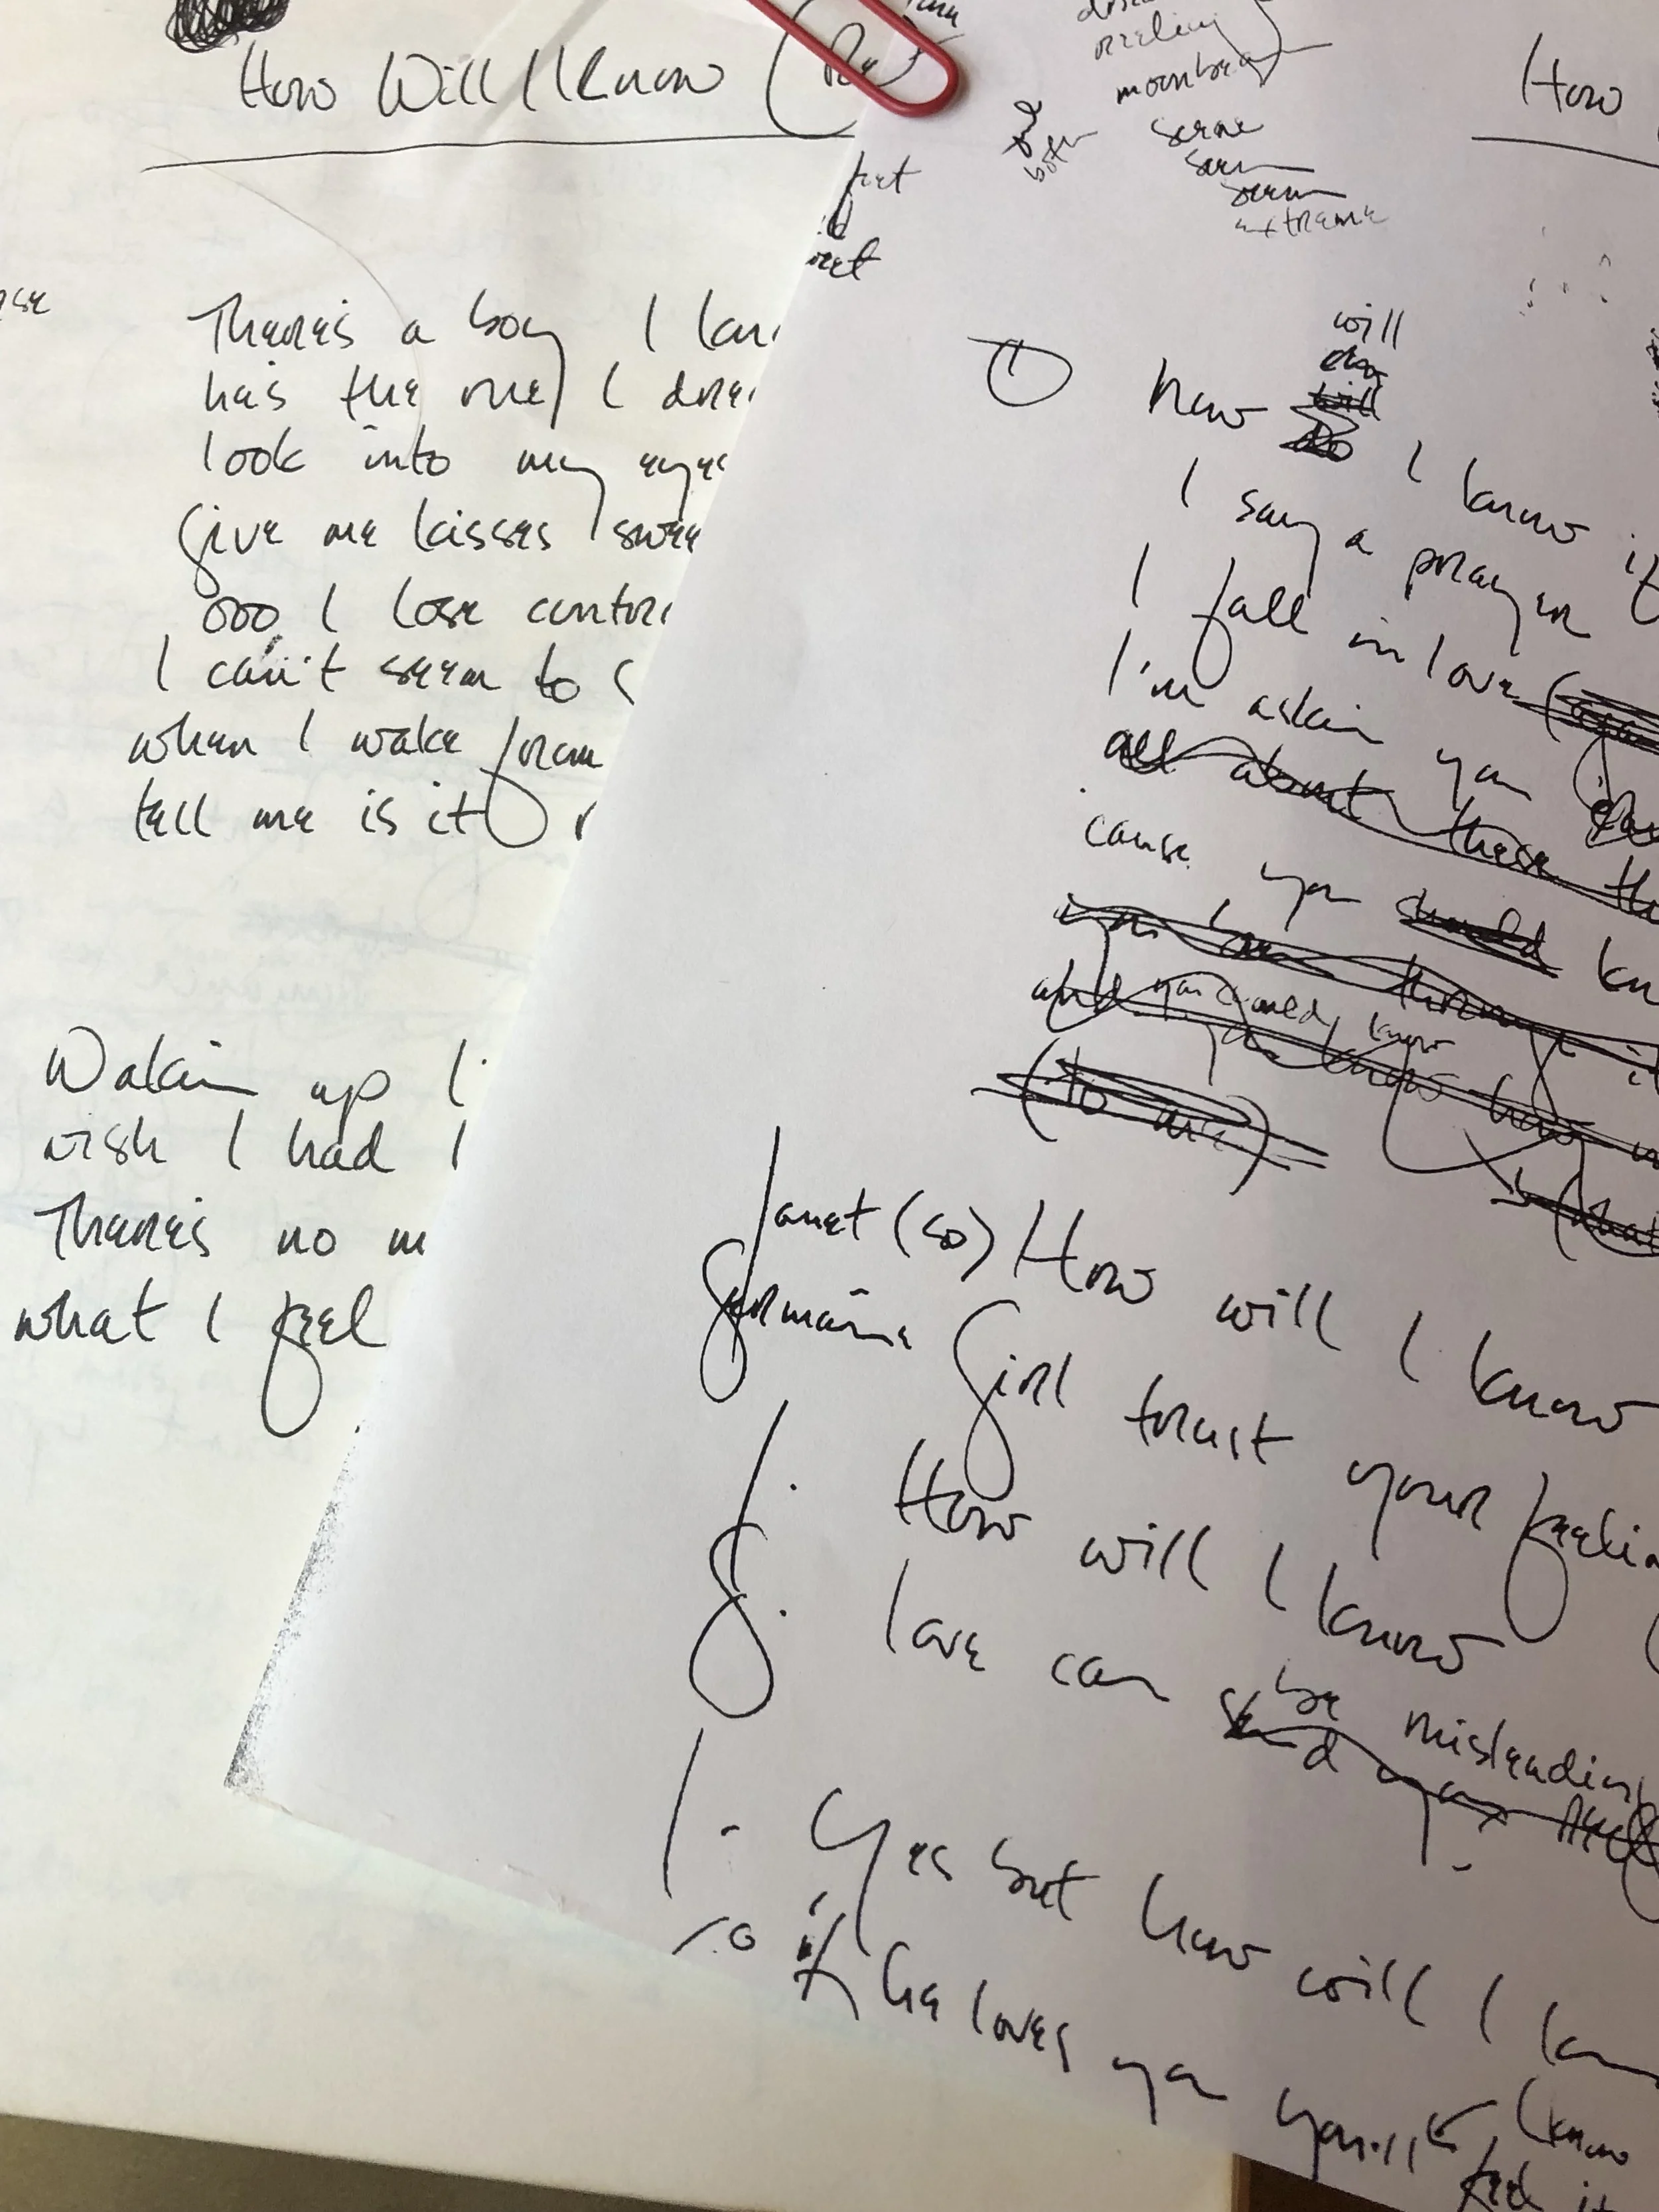 How Will I Know
There's a boy I kn
he's the one I drea
look into my eyes
Give me kisses swee
ooo I lose contro
I can't seem to
when I wake from
tell me is it r
Wakin up
wish I had
There's no m
what I feel
both
reeling
moonbea
scene
extreme
How
① how will I know if
will
do
I say a prayer
I fall in love
I'm askin you
all about these th
cause you should kn
you been through it
and you know how
you could know
Janet (so) How will I know
Jermaine Girl trust your feelin
J. How will I know
J. love can be misleading
send your
J. Yes but how will I kn
if he loves you you'll know
feel it